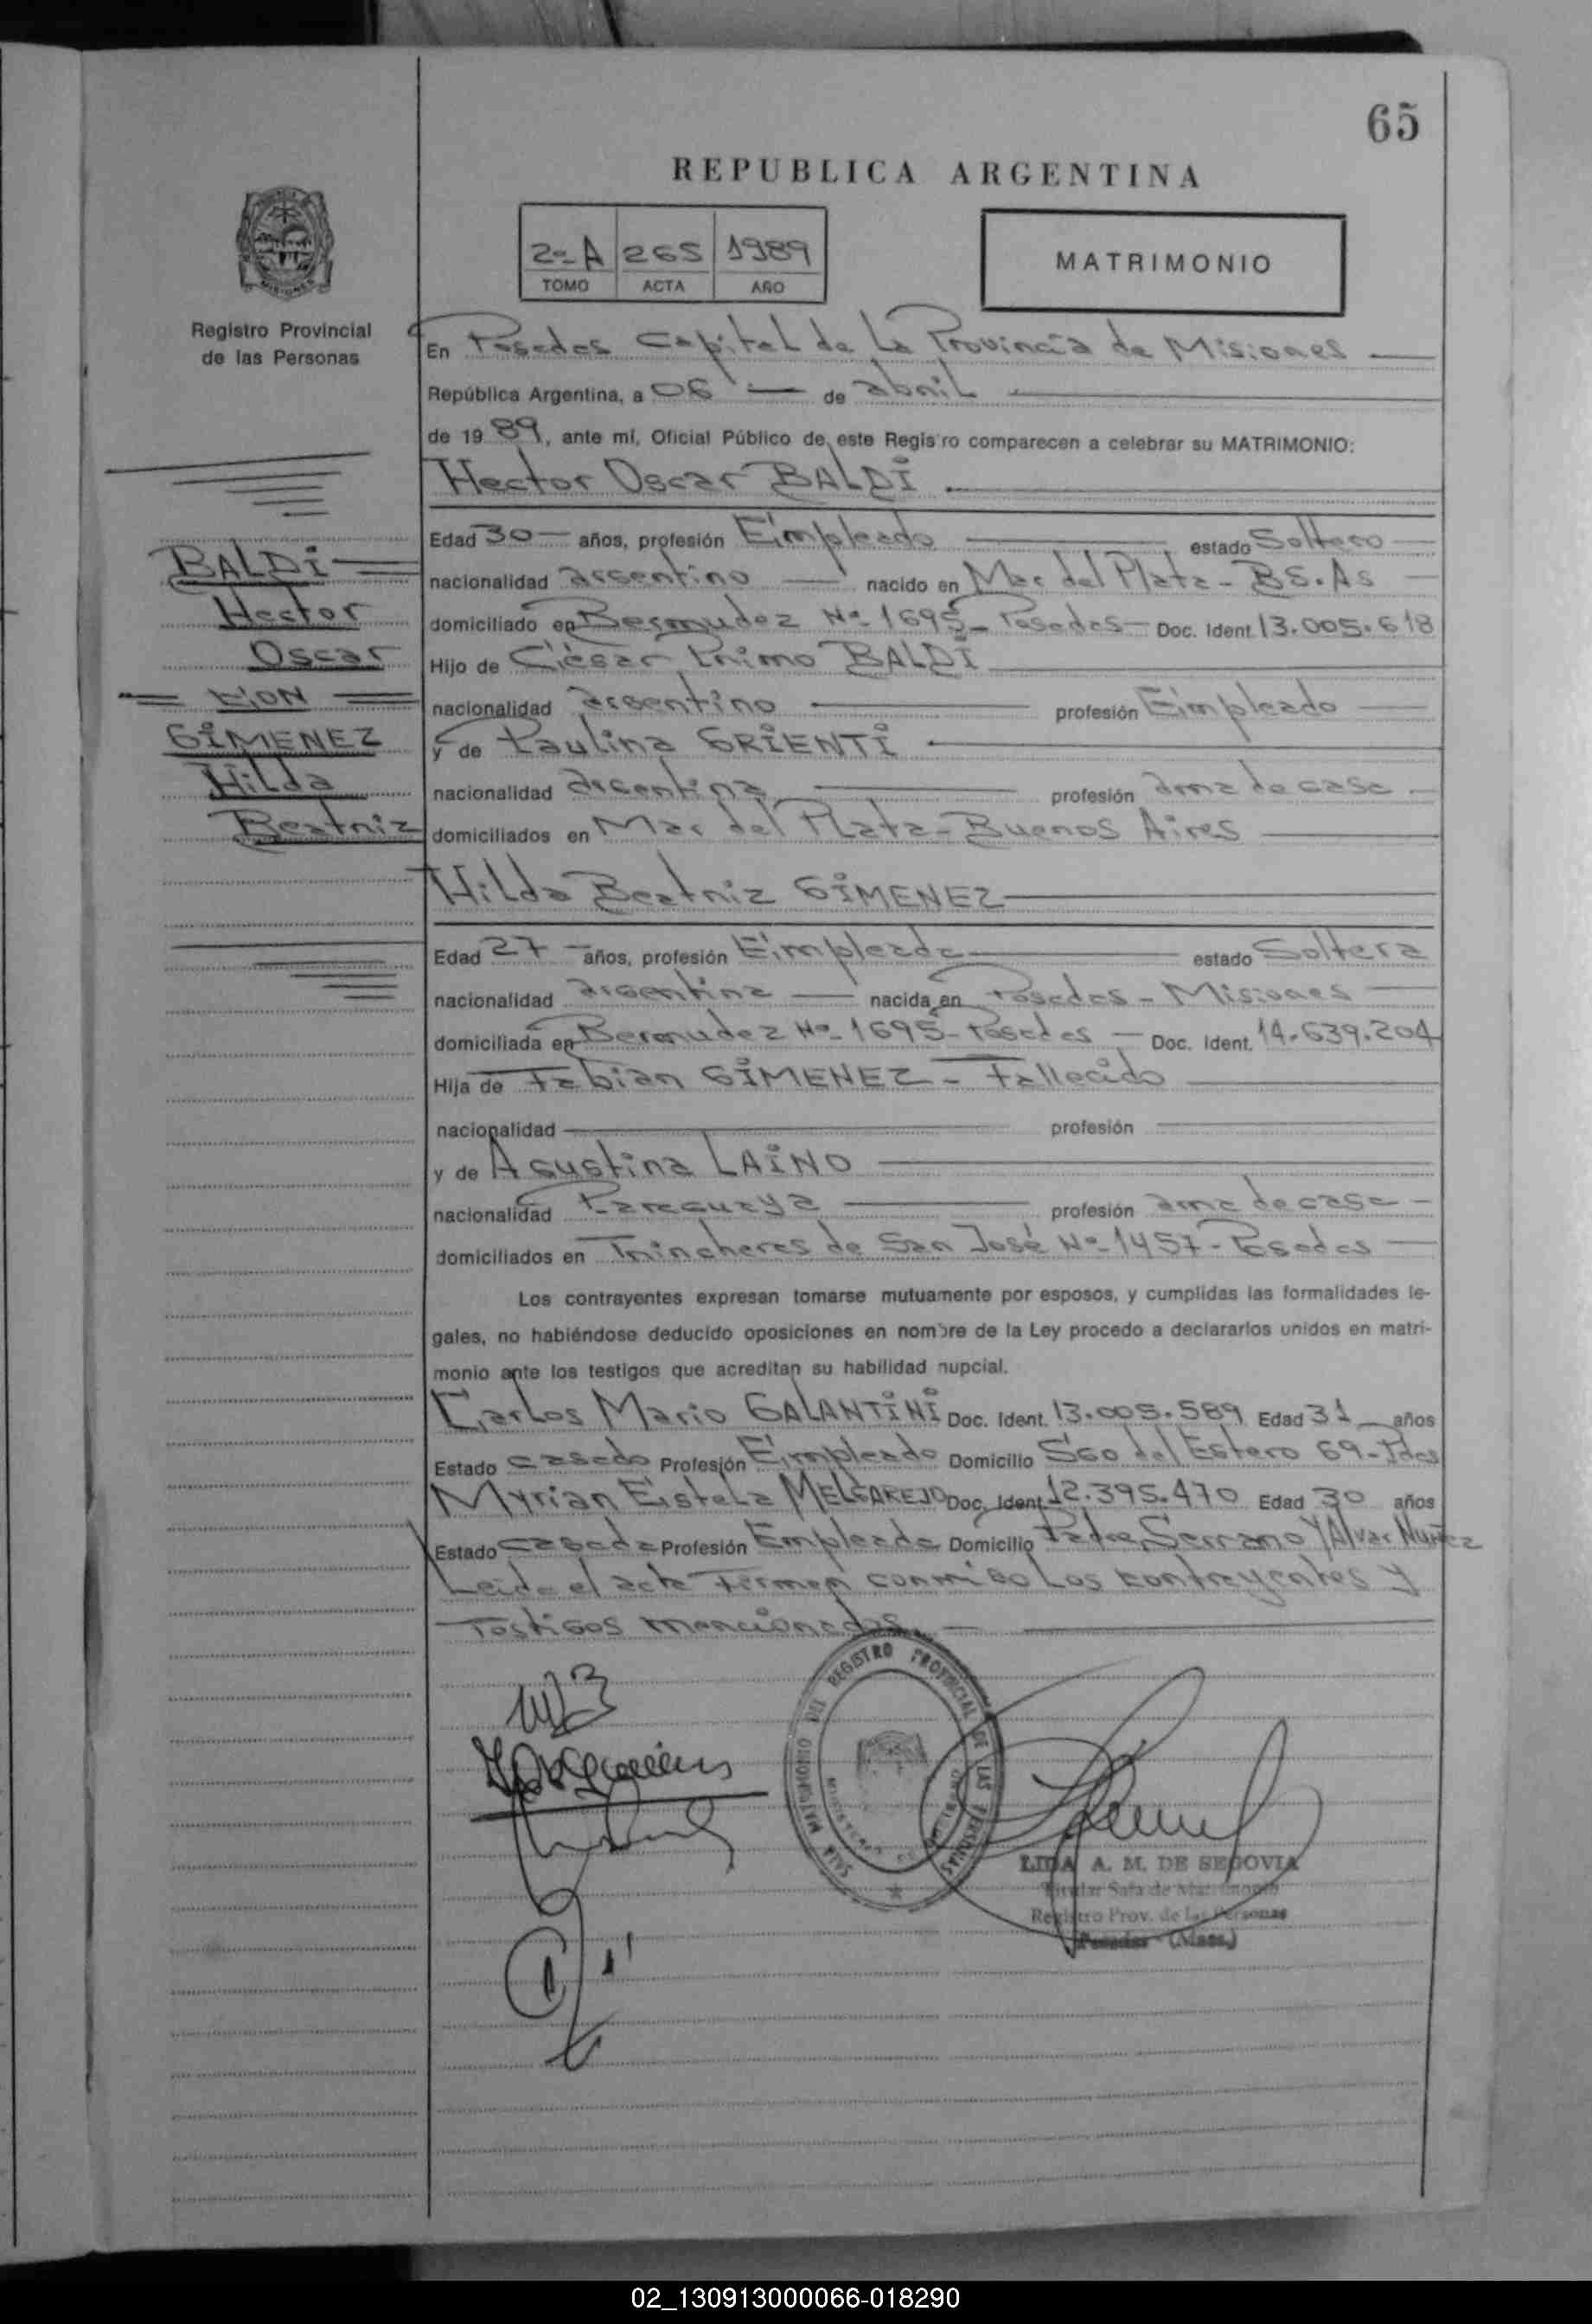 65
REPUBLICA ARGENTINA
2º A 265 1989
TOMO ACTA AÑO
MATRIMONIO
Registro Provincial
de las Personas
En Posadas Capital de La Provincia de Misiones
República Argentina, a 06 de abril
de 1989, ante mí, Oficial Público de este Registro comparecen a celebrar su MATRIMONIO:
Hector Oscar BALDI
Edad 30 años, profesión Empleado estado Soltero
nacionalidad argentino nacido en Mar del Plata - BS. As
domiciliado en Bermudez Nº 1695 - Posadas - Doc. Ident 13.005.618
Hijo de César Primo BALDI
nacionalidad argentino profesión Empleado
y de Paulina GRIENTI
nacionalidad argentina profesión ama de casa
domiciliados en Mar del Plata - Buenos Aires
BALDI
Hector
Oscar
CON
GIMENEZ
Hilda
Beatriz
Hilda Beatriz GIMENEZ
Edad 27 años, profesión Empleada estado Soltera
nacionalidad argentina nacida en Posadas - Misiones
domiciliada en Bermudez Nº 1695 - Posadas - Doc. Ident. 14.639.204
Hija de Fabian GIMENEZ - Fallecido
nacionalidad profesión
y de Agustina LAINO
nacionalidad Paraguaya profesión ama de casa
domiciliados en Trincheras de San José Nº 1457 - Posadas
Los contrayentes expresan tomarse mutuamente por esposos, y cumplidas las formalidades le-
gales, no habiéndose deducido oposiciones en nombre de la Ley procedo a declararlos unidos en matri-
monio ante los testigos que acreditan su habilidad nupcial.
Carlos Mario GALANTINI Doc. Ident. 13.005.589 Edad 31 años
Estado casado Profesión Empleado Domicilio Sgo del Estero 69 - Pdas
Myrian Estela MELGAREJO Doc. Ident 12.395.470 Edad 30 años
Estado casada Profesión Empleada Domicilio Padre Serrano Y Alvar Nuñez
Leida el acta Firman conmigo Los contrayentes y
Testigos mencionados
SALA MATRIMONIO DEL REGISTRO PROVINCIAL DE LAS PERSONAS
LIDA A. M. DE SEGOVIA
Titular Sala de Matrimonio
Registro Prov. de las Personas
Posadas (Mnes.)
02_130913000066-018290